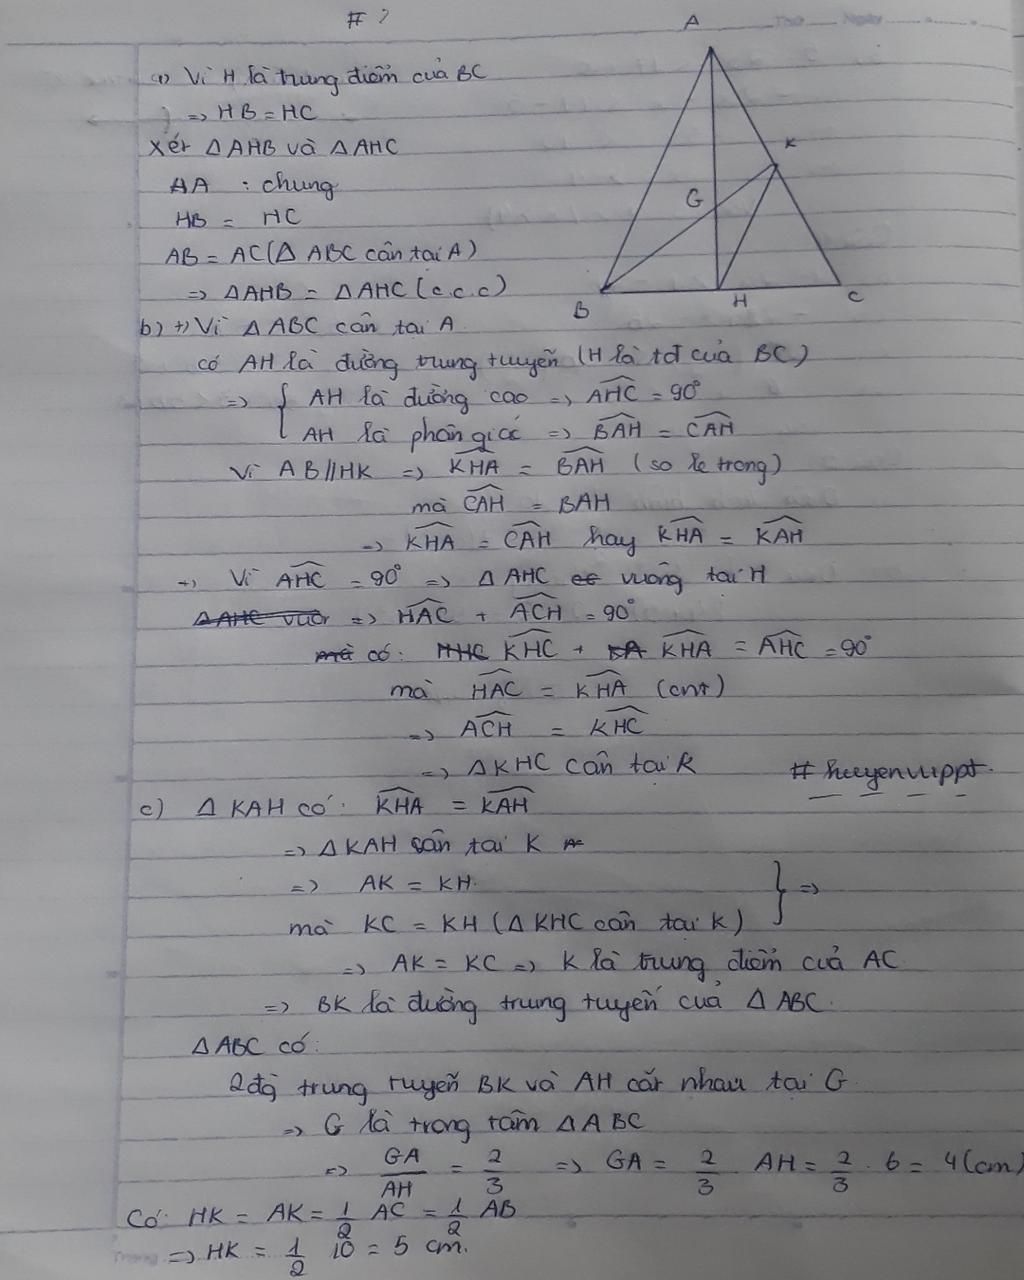 # 2
A
a) Vì H là trung điểm của BC
=> HB = HC
Xét ΔAHB và ΔAHC
HA : chung
HB = HC
AB = AC (Δ ABC cân tại A)
=> ΔAHB = ΔAHC (c.c.c)
K
G
B
H
C
b) +) Vì ΔABC cân tại A
có AH là đường trung tuyến (H là tđ của BC)
=> { AH là đường cao => AHC = 90°
AH là phân giác => BAH = CAH
Vì AB // HK => KHA = BAH (so le trong)
mà CAH = BAH
=> KHA = CAH hay KHA = KAH
+) Vì AHC = 90° => Δ AHC vuông tại H
=> HAC + ACH = 90°
có: KHC + KHA = AHC = 90°
mà HAC = KHA (cmt)
=> ACH = KHC
=> ΔKHC cân tại K
# huyenvuppt.
c) Δ KAH có: KHA = KAH
=> ΔKAH cân tại K
=> AK = KH. } =>
mà KC = KH (Δ KHC cân tại K)
=> AK = KC => K là trung điểm của AC
=> BK là đường trung tuyến của Δ ABC.
ΔABC có:
2 đg trung tuyến BK và AH cắt nhau tại G
=> G là trọng tâm ΔABC
=> GA/AH = 2/3 => GA = 2/3 AH = 2/3 . 6 = 4 (cm)
Có: HK = AK = 1/2 AC = 1/2 AB
=> HK = 1/2 10 = 5 cm.